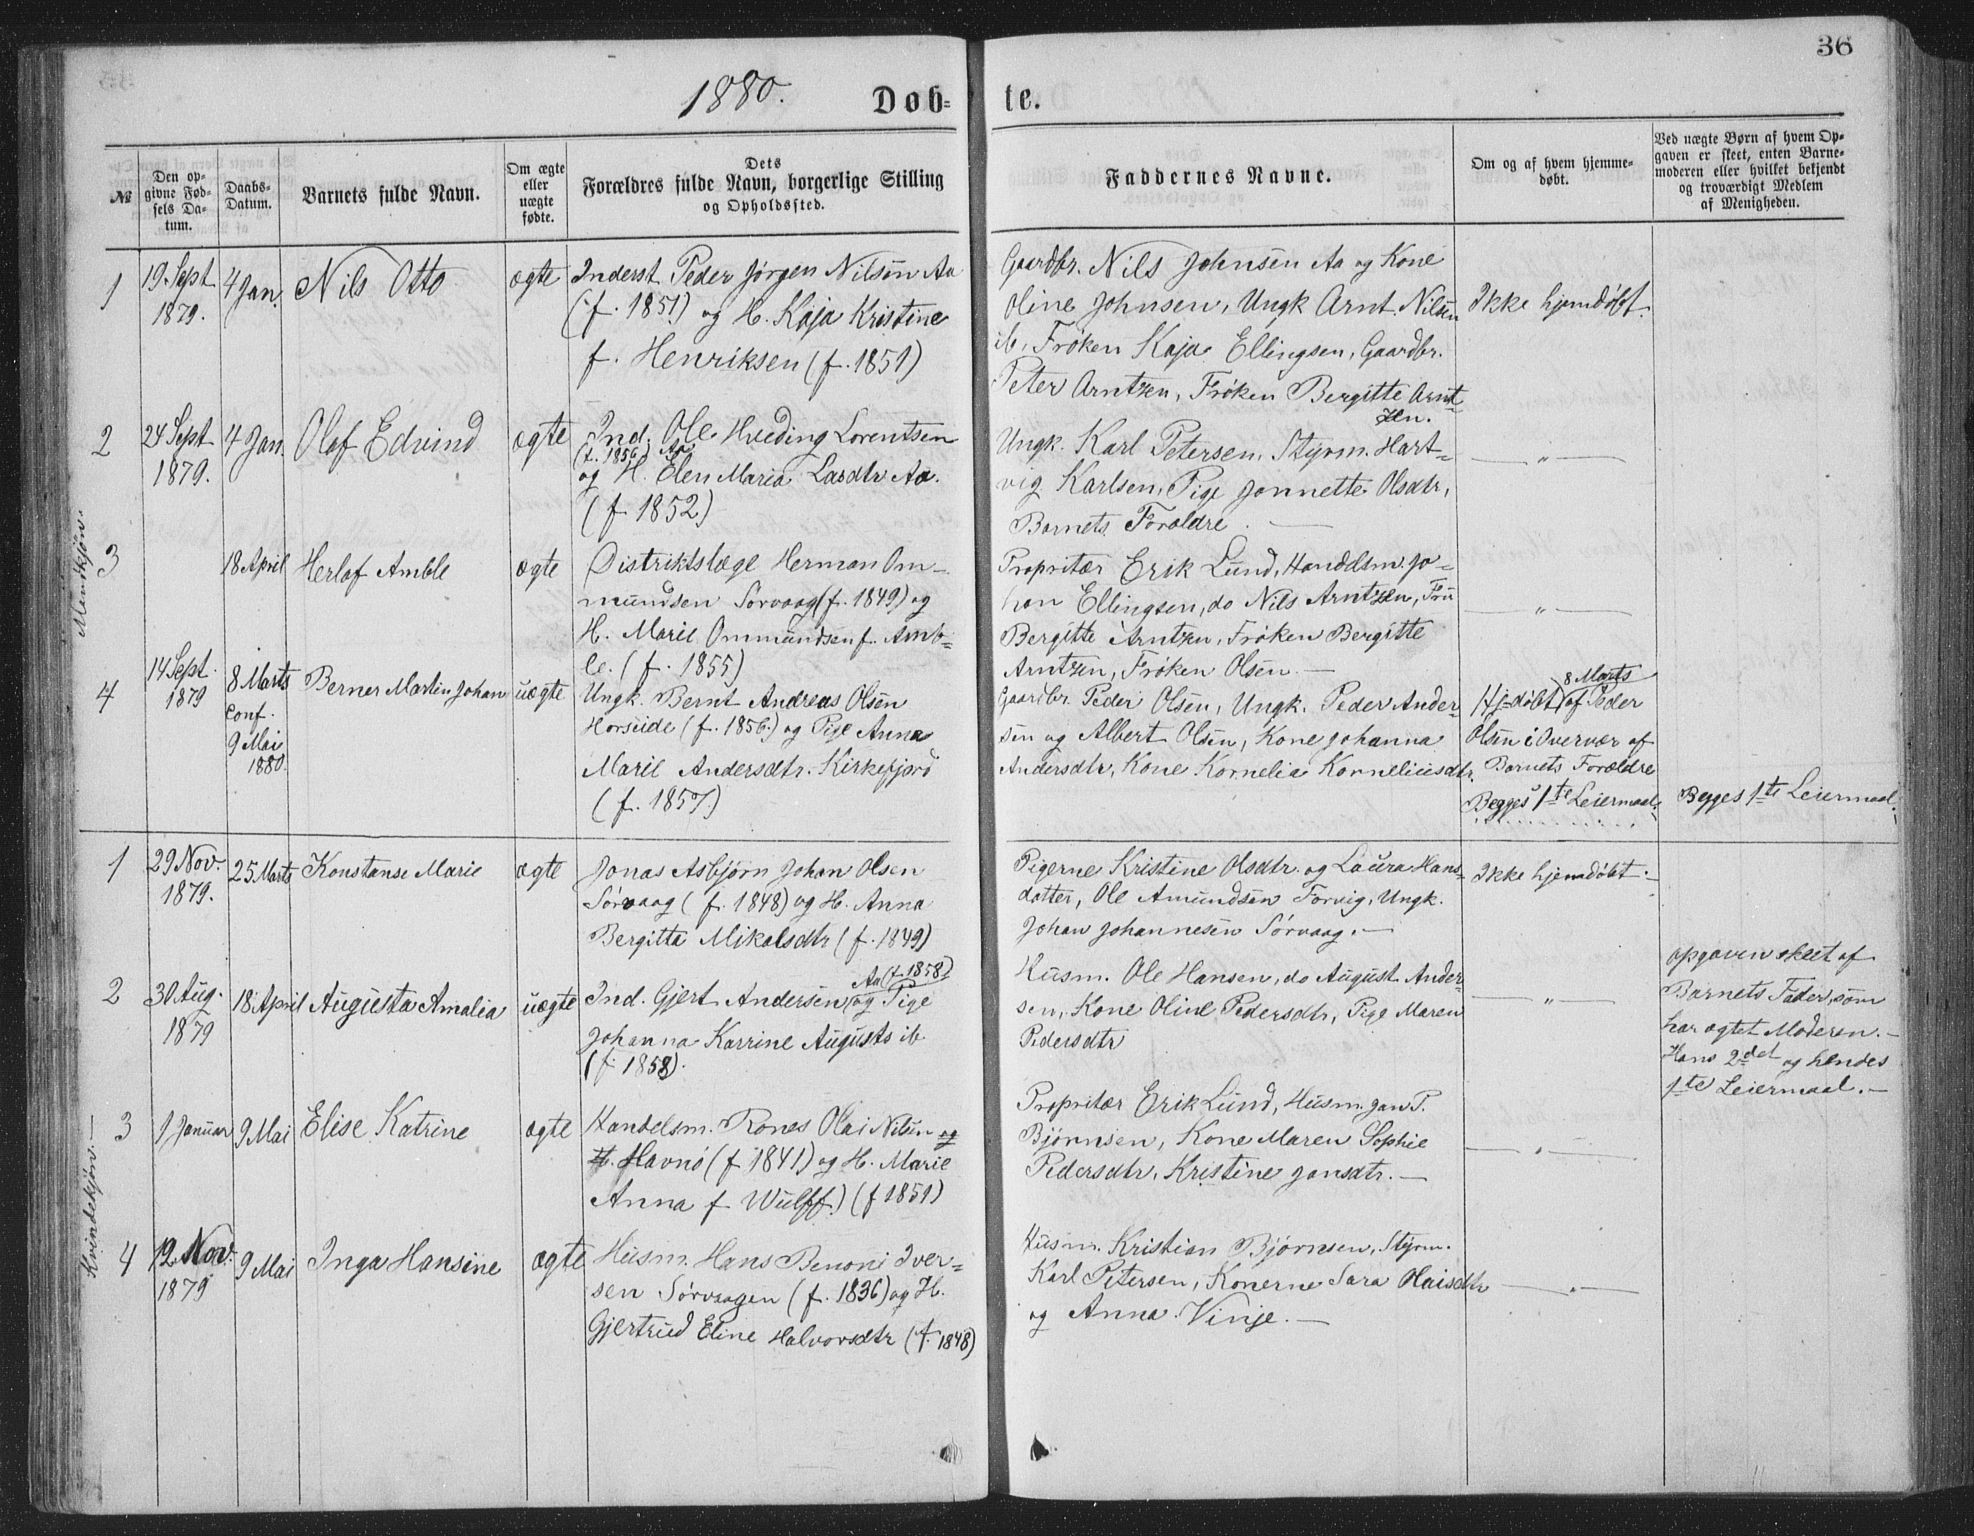 36
1880.
Døb-
te.
№
Den op-
givne Fød-
sels Da-
tum.
Daabs-
Datum.
Barnets fulde Navn.
Om ægte
eller
uægte
fødte.
Dets
Forældres fulde Navn, borgerlige Stilling
og Opholdssted.
Faddernes Navne.
Om og af hvem hjemme-
døbt.
Ved uægte Børn af hvem Op-
gaven er skeet, enten Barne-
moderen eller hvilket bekjendt
og troværdigt Medlem
af Menigheden.
Mandkjøn.
1
19 Sept
1879.
4 Jan.
Nils Otto
ægte
Inderst Peder Jørgen Nilsen Aa
(f. 1851) og H. Kaja Kristine
f. Henriksen (f. 1851)
Gaardbr. Nils Johnsen Aa og Kone
Oline Johnsen, Ungk Arnt Nilsen
ib, Frøken Kaja Ellingsen, Gaardbr.
Peter Arntzen, Frøken Bergitte Arnt-
zen.
Ikke hjemdøbt.
2
24 Sept
1879.
4 Jan.
Olaf Edvind
ægte
Ind. Ole Hveding Lorentsen
(f. 1856) Aa
og H. Elen Maria Lasdtr Aa.
(f 1852)
Ungk. Karl Petersen, Styrm. Hart-
vig Karlsen, Pige Jonnette Olsdtr,
Barnets Forældre. —
— „ —
3
18 April
Herlof Amble
ægte
Distriktslæge Herman Om-
mundsen Sørvaag (f. 1849) og
H. Marie Ommundsen f. Amb-
le. (f. 1855)
Propritær Erik Lund, Handelsm. Jo-
han Ellingsen, do Nils Arntzen, Fru
Bergitte Arntzen, Frøken Bergitte
Arntzen, Frøken Olsen —
— „ —
4
14 Sept.
1879
8 Marts
Conf.
9 Mai
1880.
Berner Martin Johan
uægte
Ungk. Bernt Andreas Olsen
Horseide (f. 1856.) og Pige Anna
Marie Andersdtr. Kirkefjord
(f. 1857)
Gaardbr. Peder Olsen, Ungk. Peder Ander-
sen og Albert Olsen, Kone Johanna
Andersdtr, Kone Kornelia Korneliusdtr.
8 Marts
Hj-døbt af Peder
Olsen i Overvær af
Barnets Forældre
Begges 1te Leiermaal.
Begges 1te Leiermaal.
Kvindekjøn. —
1
29 Nov.
1879.
25 Marts
Konstanse Marie
ægte
Jonas Asbjørn Johan Olsen
Sørvaag (f. 1848) og H. Anna
Bergitta Mikalsdtr (f. 1849)
Pigerne Kristine Olsdtr. og Laura Hans-
datter, Ole Amundsen Forvig, Ungk.
Johan Johannesen Sørvaag. —
Ikke hjemdøbt. —
2
30 Aug.
1879
18 April
Augusta Amalia
uægte
Aa (f. 1858)
Ind. Gjert Andersen og Pige
Johanna Karrine Augusts ib
(f. 1858).
Husm. Ole Hansen, do August Ander-
sen, Kone Oline Pedersdtr, Pige Maren
Pedersdtr
— „ —
opgaven skeet af
Barnets Fader, som
har ægtet Moderen. —
Hans 2det og hendes
1te Leiermaal. —
3
1 Januar
9 Mai
Elise Katrine
ægte
Handelsm. Rones Olai Nilsen og
H. Havnø (f 1841) og H. Marie
Anna f Wulff.) (f 1851)
Propritær Erik Lund, Husm. Jan P.
Bjørnsen, Kone Maren Sophie
Pedersdtr, Kristine Jansdtr. —
— „ —
4
12 Nov.
1879
9 Mai
Inga Hansine
ægte
Husm. Hans Benoni Iver-
sen Sørvaagen (f. 1836) og H.
Gjertrud Eline Halvorsdtr (f. 1848)
Husm. Kristian Bjørnsen, Styrm.
Karl Petersen, Konerne Sara Olaisdtr
og Anna Vinje. —
— „ —